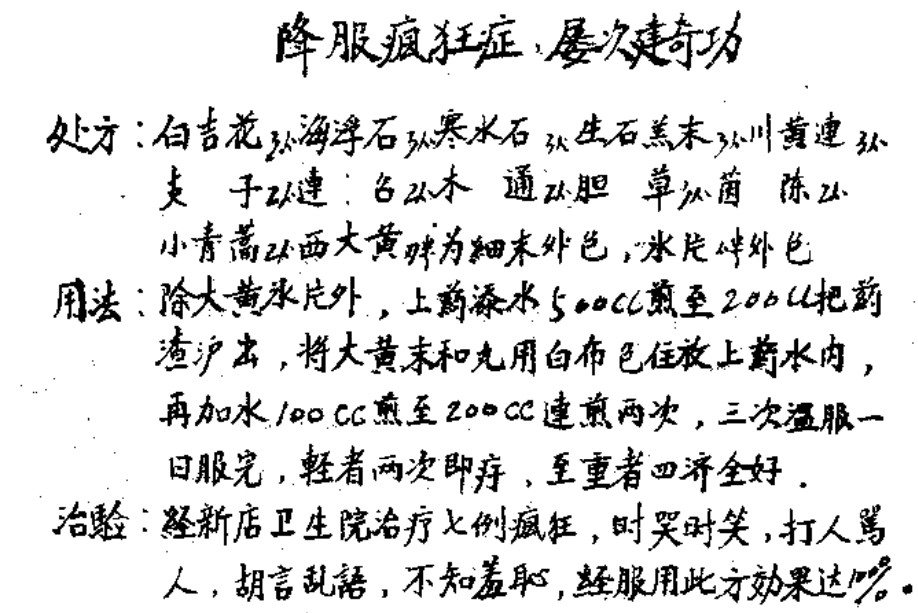 降服瘋狂症,屡次建奇功
处方:白吉花3小海浮石3小寒水石3小生石羔末3小川黄連3小
支 子2小連 召2小木 通2小胆 草3小茵 陈2小
小青蒿2小西大黄 为細末外包,氷片 外包
用法:除大黄氷片外,上药添水500CC煎至200CC把药
渣沪出,将大黄末和 用白布包住放上药水内,
再加水100CC煎至200CC連煎两次,三次温服一
日服完,軽者两次即疗,至重者四济全好.
治驗:経新店卫生院治疗七例瘋狂,时哭时笑,打人罵
人,胡言乱語,不知羞恥,経服用此方効果达100%。